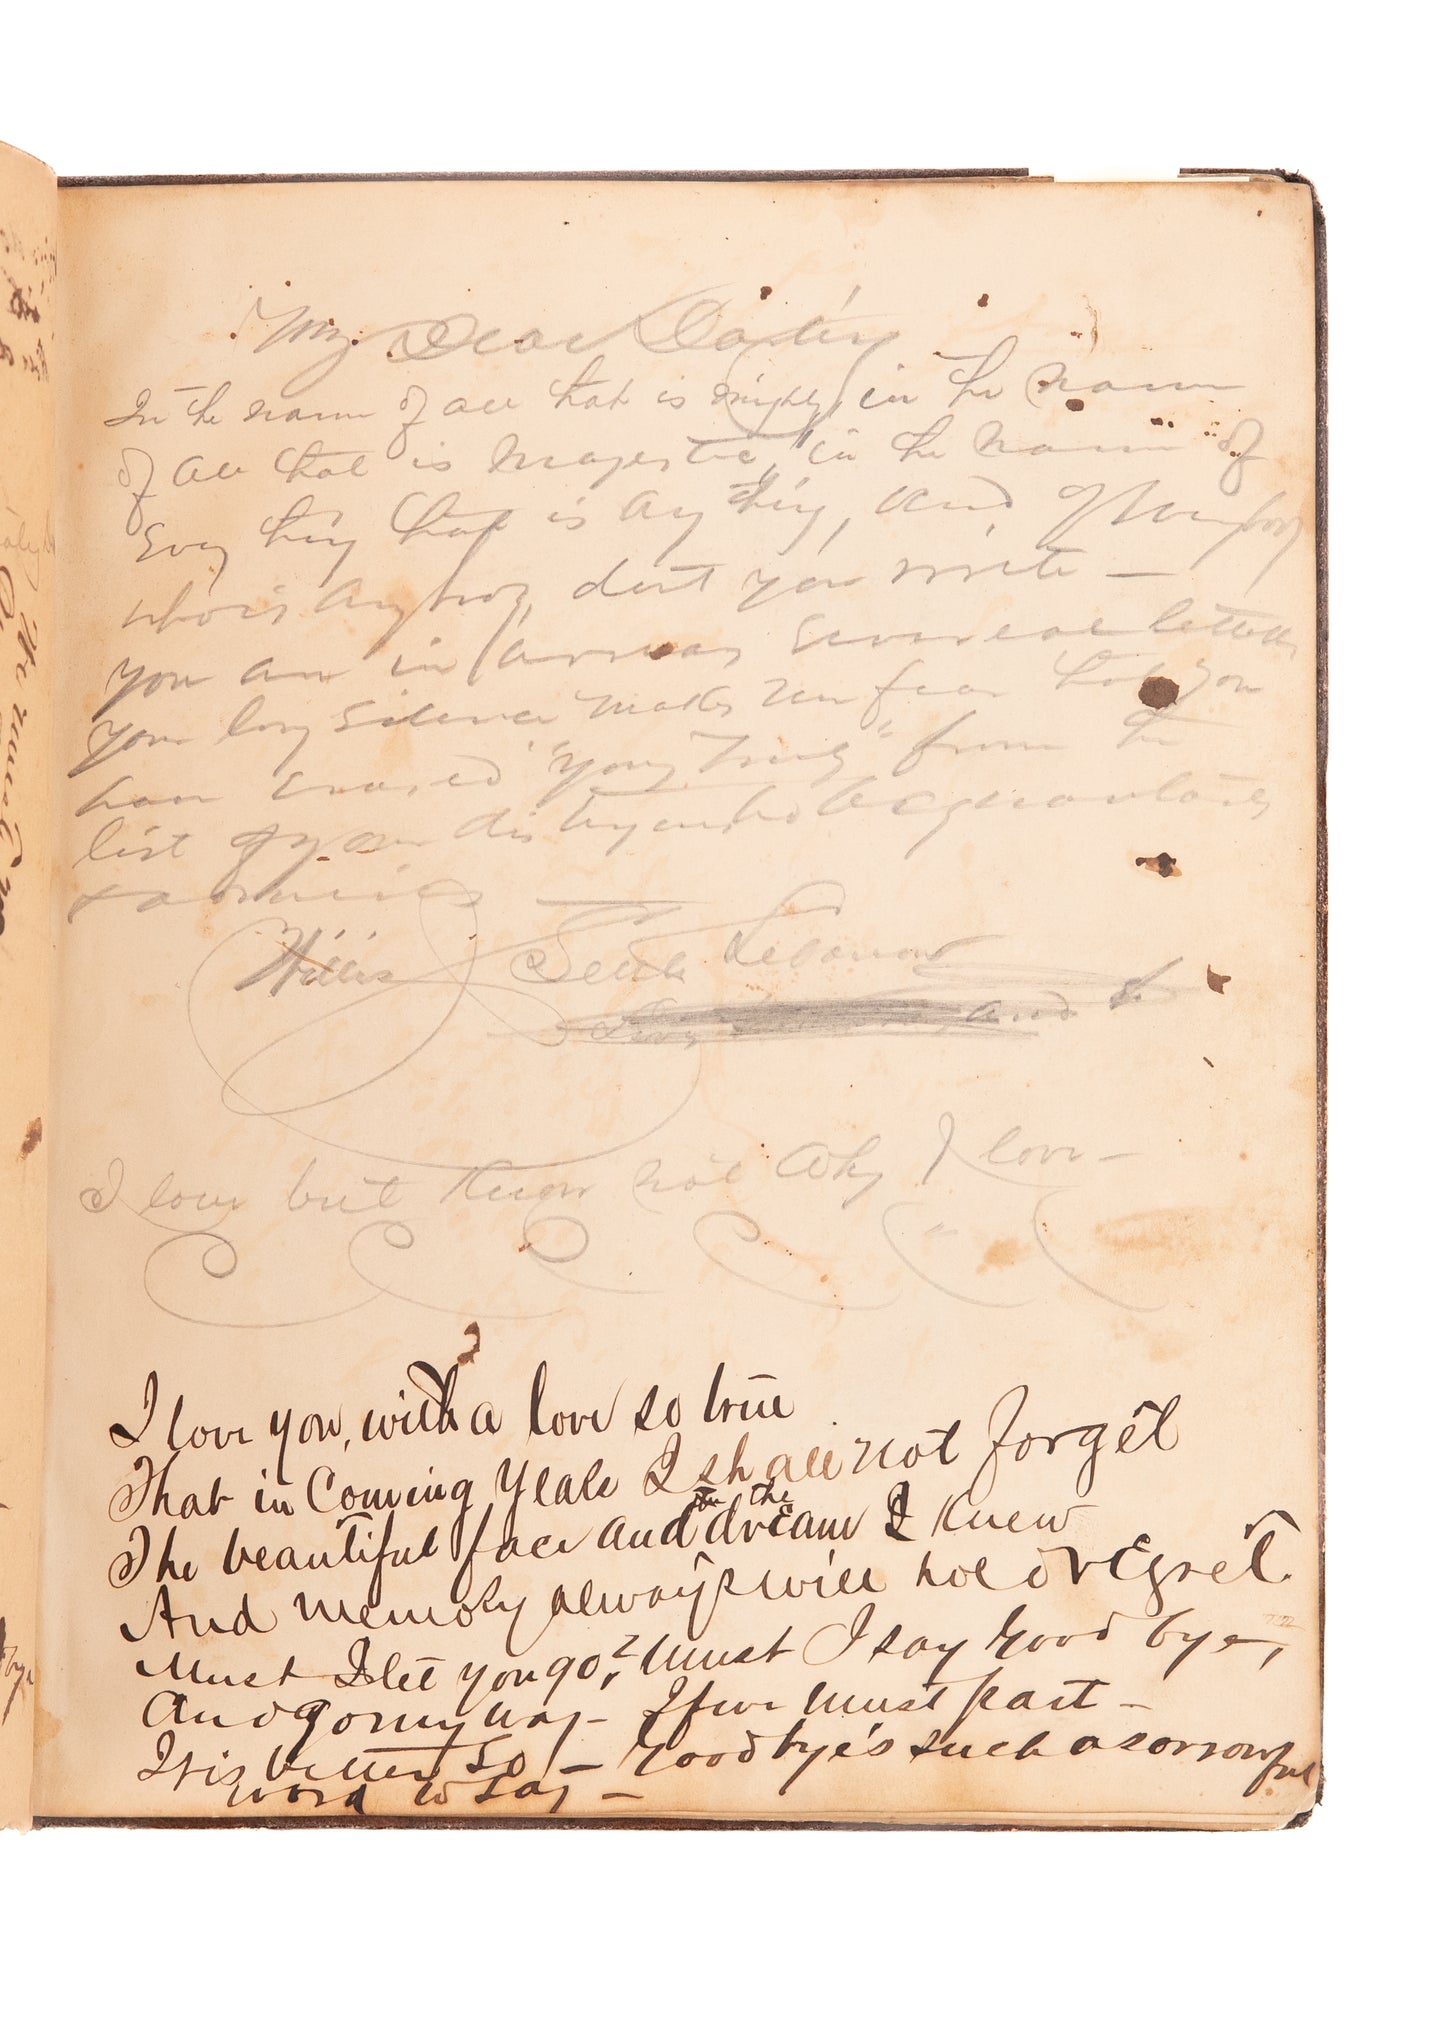 My Dear
In the name of all that is mighty, in the name
of all that is Majestic, in the name of
Every thing that is any thing, and of Every body
who is any body, dont you write —
you are in arrears several letters
your long silence makes me fear that you
have erased "yours Truly" from the
list of your distinguished acquaintances
Willis South Lebanon
and
I love but know not why I love —
I love you, with a love so true
That in Coming Years I shall not forget
The beautiful face and the dream I knew
And memory always will hold regret.
Must I let you go? Must I say Good bye,
And go my way — If we must part —
It is better So — Good bye's such a sorrowful
word to Say —